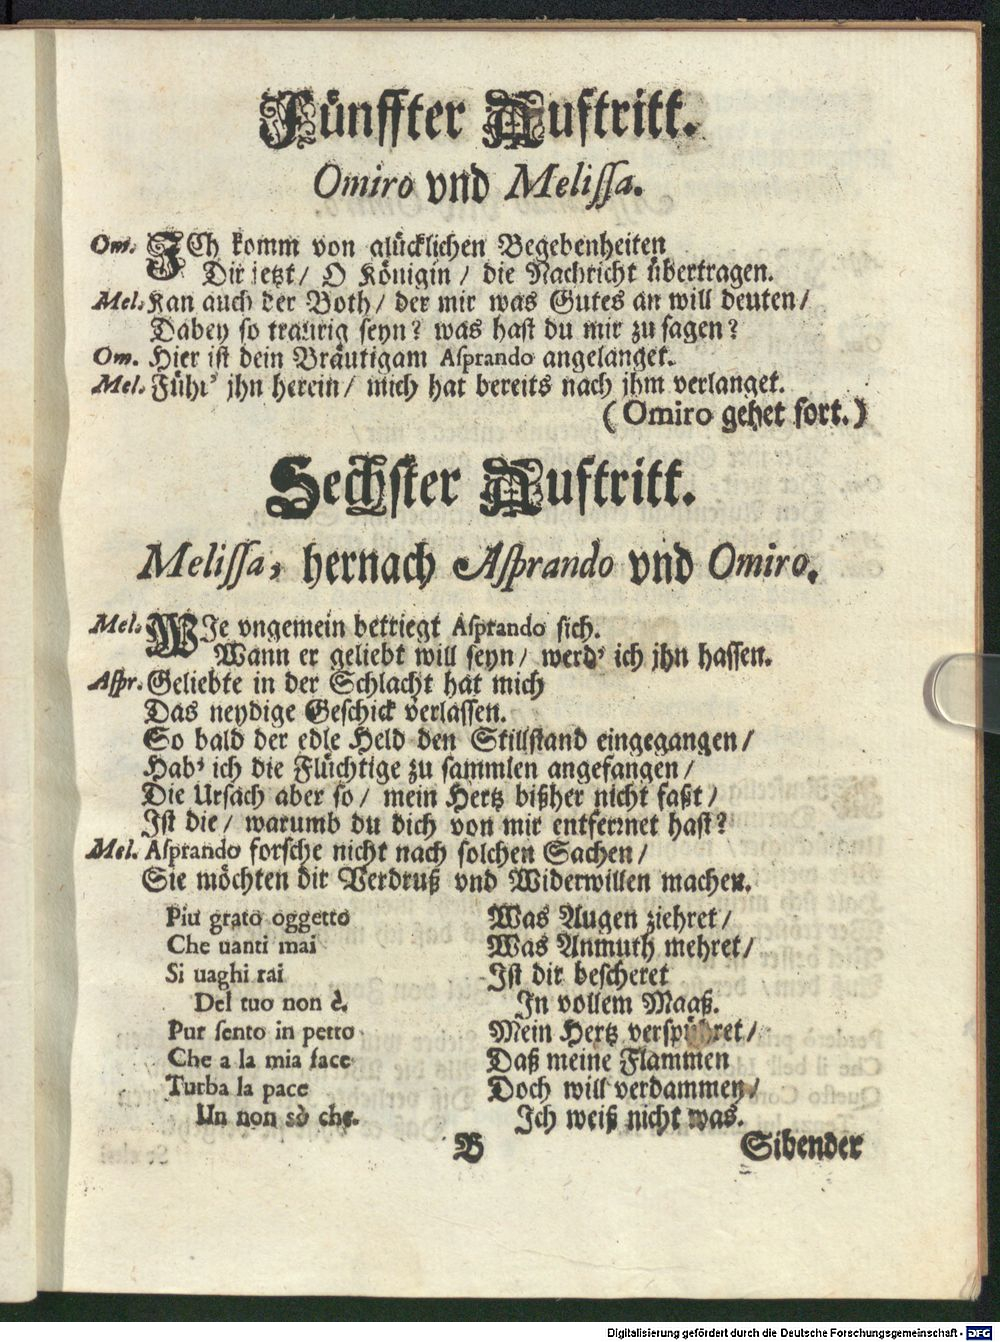 Fünffter Auftritt.
Omiro vnd Melissa.
Om. ICh komm von glücklichen Begebenheiten
Dir jetzt/ O Königin/ die Nachricht übertragen.
Mel. Kan auch der Both/ der mir was Gutes an will deuten/
Dabey so traurig seyn? was hast du mir zu sagen?
Om. Hier ist dein Bräutigam Asprando angelanget.
Mel. Führ' jhn herein/ mich hat bereits nach jhm verlanget.
(Omiro gehet fort.)
Sechster Auftritt.
Melissa, hernach Asprando vnd Omiro.
Mel. WIe vngemein betriegt Asprando sich.
Wann er geliebt will seyn/ werd' ich jhn hassen.
Aspr. Geliebte in der Schlacht hat mich
Das neydige Geschick verlassen.
So bald der edle Held den Stillstand eingegangen/
Hab' ich die Flüchtige zu sammlen angefangen/
Die Ursach aber so/ mein Hertz bißher nicht faßt/
Ist die/ warumb du dich von mir entfernet hast?
Mel. Asprando forsche nicht nach solchen Sachen/
Sie möchten dir Verdruß vnd Widerwillen machen.
Piu grato oggetto
Che uanti mai
Si uaghi rai
Del tuo non è.
Pur sento in petto
Che a la mia face
Turba la pace
Un non sò che.
Was Augen ziehret/
Was Anmuth mehret/
Ist dir bescheret
In vollem Maaß.
Mein Hertz verspühret/
Daß meine Flammen
Doch will verdammen/
Ich weiß nicht was.
B
Sibender
Digitalisierung gefördert durch die Deutsche Forschungsgemeinschaft - DFG